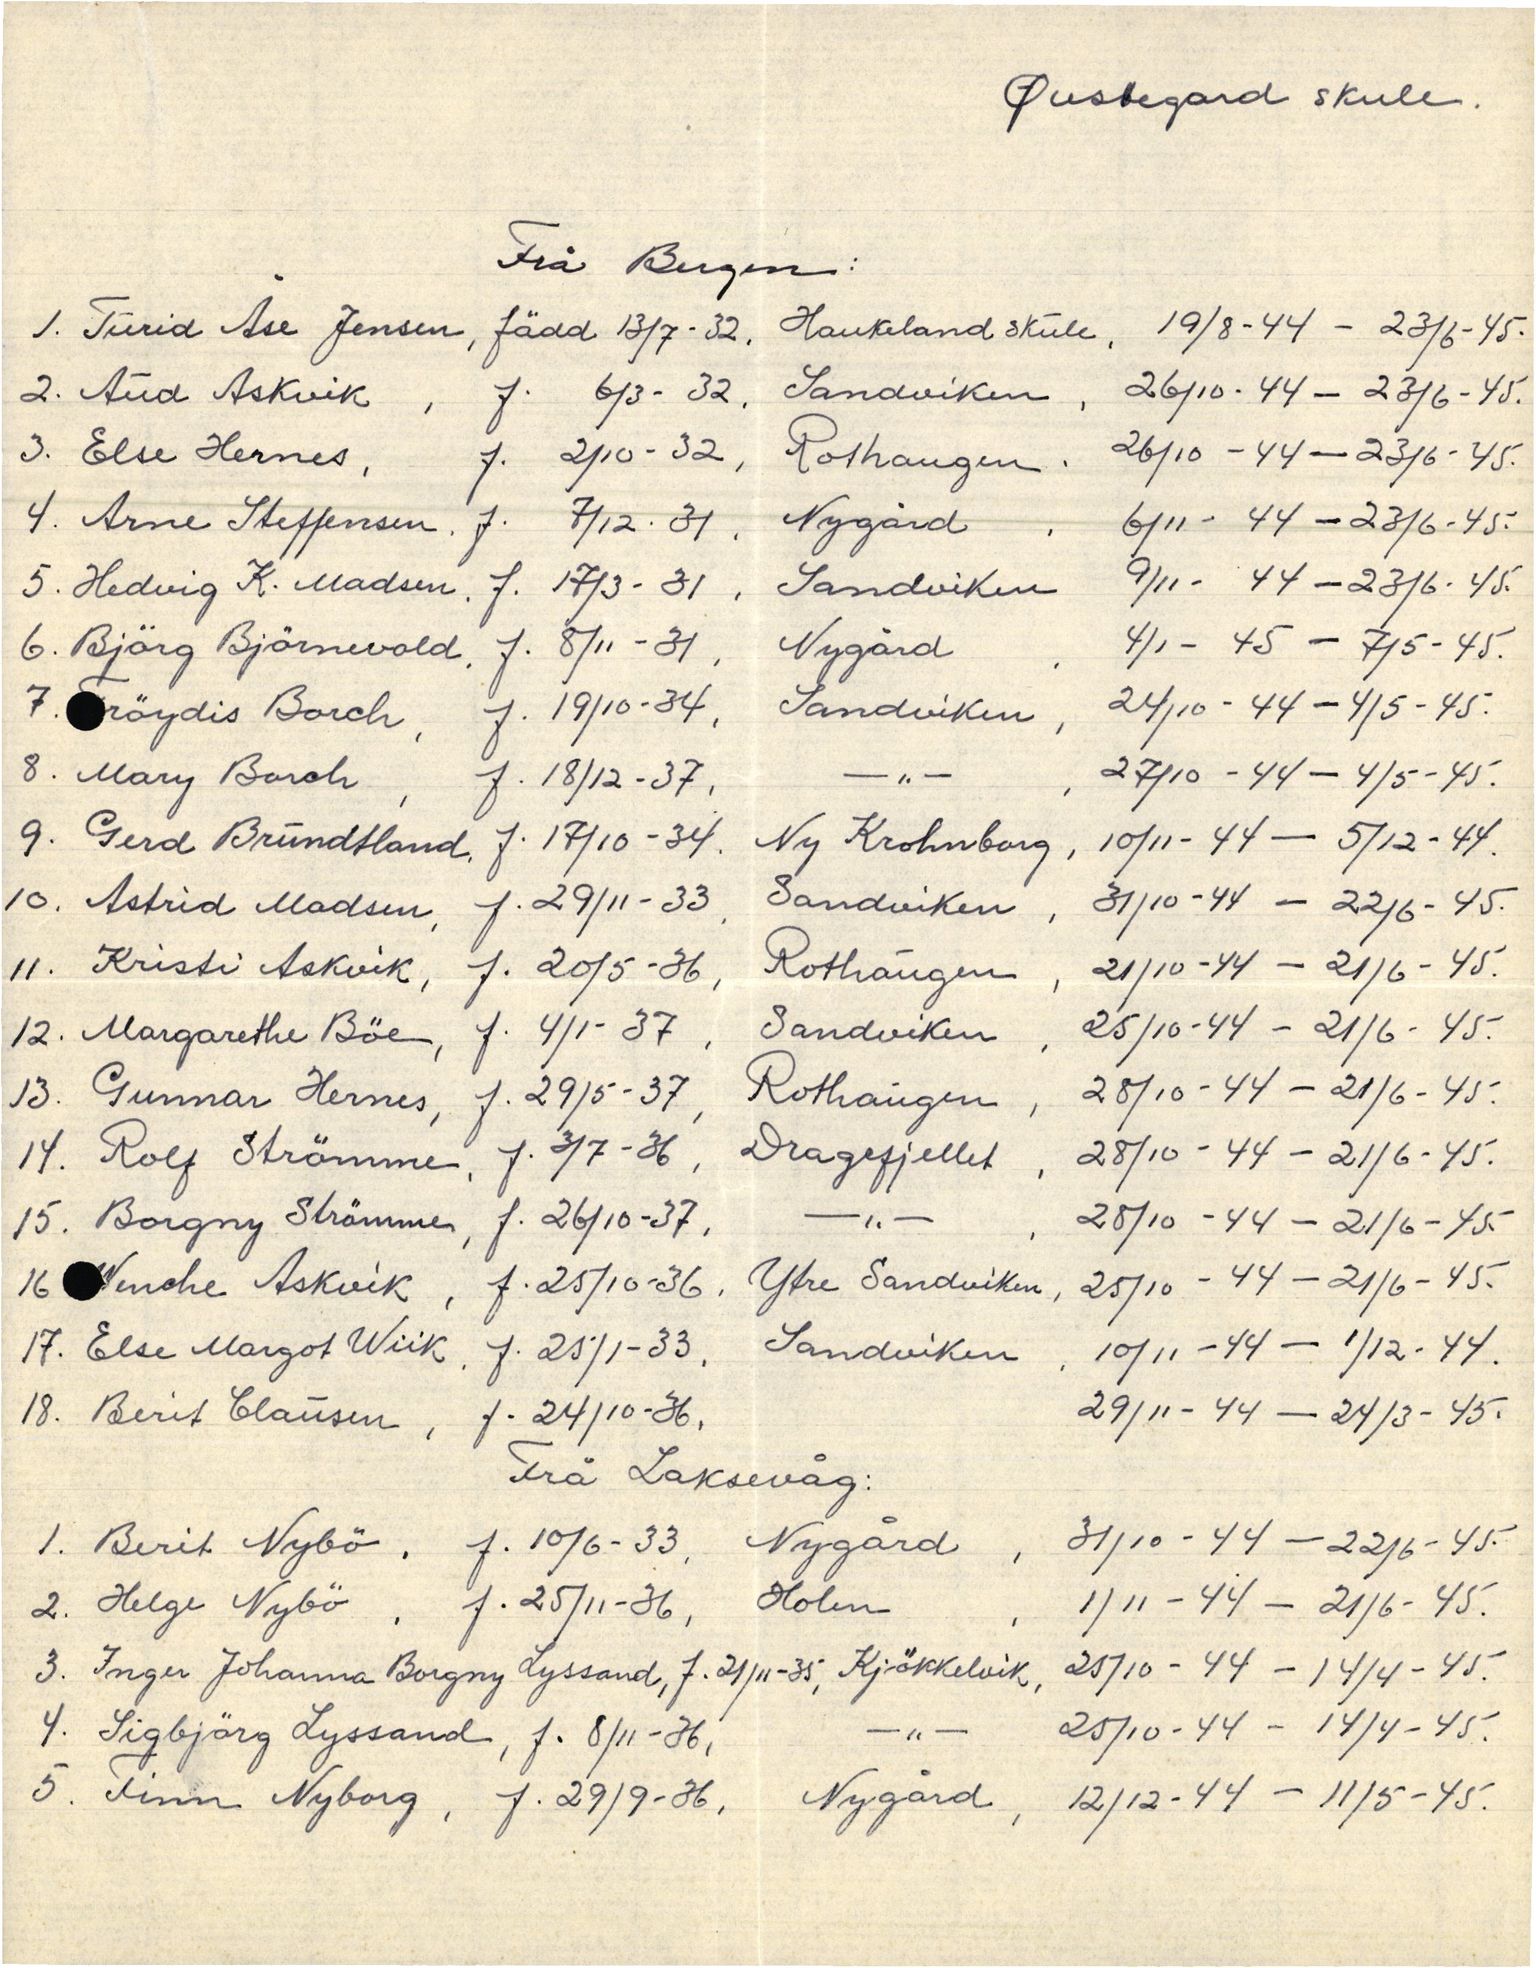 Øvstegard skule.
Frå Bergen:
1. Turid Åse Jensen, född 13/7-32, Haukeland skule, 19/8-44 — 23/6-45.
2. Aud Askvik, f. 6/3-32, Sandviken, 26/10-44 — 23/6-45.
3. Else Hernes, f. 2/10-32, Rothaugen. 26/10-44 — 23/6-45.
4. Arne Steffensen, f. 7/12-31, Nygård, 6/11-44 — 23/6-45.
5. Hedvig K. Madsen, f. 17/3-31, Sandviken 9/11-44 — 23/6-45.
6. Björg Björnevold, f. 8/11-31, Nygård, 4/1-45 — 7/5-45.
7. Fröydis Borch, f. 19/10-34, Sandviken, 24/10-44 — 4/5-45.
8. Mary Borch, f. 18/12-37, —"—, 27/10-44 — 4/5-45.
9. Gerd Brundtland, f. 17/10-34. Ny Krohnborg, 10/11-44 — 5/12-44.
10. Astrid Madsen, f. 29/11-33, Sandviken, 31/10-44 — 22/6-45.
11. Kristi Askvik, f. 20/5-36, Rothaugen, 21/10-44 — 21/6-45.
12. Margarethe Böe, f. 4/1-37, Sandviken, 25/10-44 — 21/6-45.
13. Gunnar Hernes, f. 29/5-37, Rothaugen, 28/10-44 — 21/6-45.
14. Rolf Strömme, f. 3/7-36, Dragefjellet, 28/10-44 — 21/6-45.
15. Borgny Strömme, f. 26/10-37, —"—, 28/10-44 — 21/6-45
16 Wenche Askvik, f. 25/10-36, Ytre Sandviken, 25/10-44 — 21/6-45.
17. Else Margot Wiik, f. 25/1-33, Sandviken, 10/11-44 — 1/12-44.
18. Berit Clausen, f. 24/10-36, 29/11-44 — 24/3-45.
Frå Laksevåg:
1. Berit Nybö, f. 10/6-33, Nygård, 31/10-44 — 22/6-45.
2. Helge Nybö, f. 25/11-36, Holen, 1/11-44 — 21/6-45.
3. Inger Johanna Borgny Lyssand, f. 21/11-35, Kjökkelvik, 25/10-44 — 14/4-45.
4. Sigbjörg Lyssand, f. 8/11-36, —"— 25/10-44 — 14/4-45.
5. Finn Nyborg, f. 29/9-36, Nygård, 12/12-44 — 11/5-45.